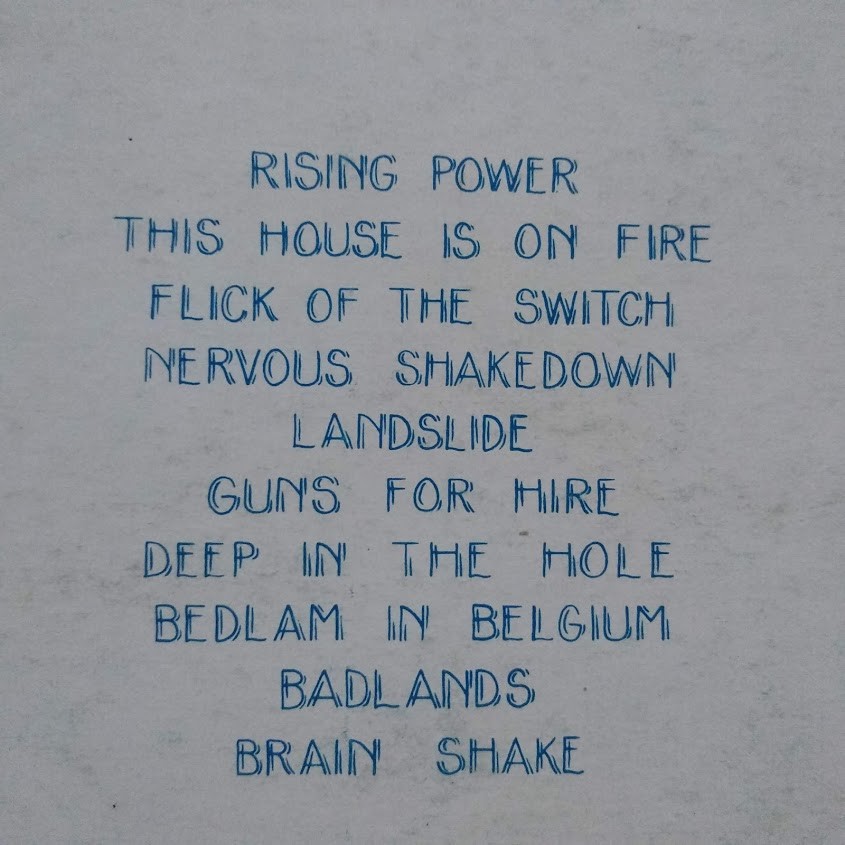 RISING POWER
THIS HOUSE IS ON FIRE
FLICK OF THE SWITCH
NERVOUS SHAKEDOWN
LANDSLIDE
GUNS FOR HIRE
DEEP IN THE HOLE
BEDLAM IN BELGIUM
BADLANDS
BRAIN SHAKE